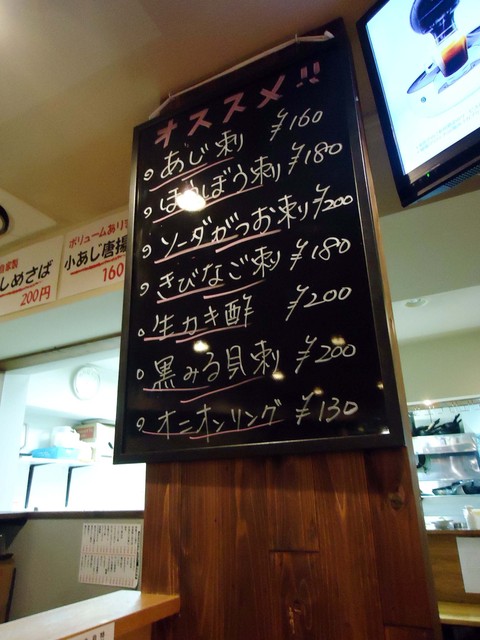 オススメ!!
あじ刺 ¥160
ほうぼう刺 ¥180
ソーダがつお刺 ¥200
きびなご刺 ¥180
生カキ酢 ¥200
黒みる貝刺 ¥200
オニオンリング ¥130
自家製
しめさば
200円
ボリュームあり
小あじ唐揚
160